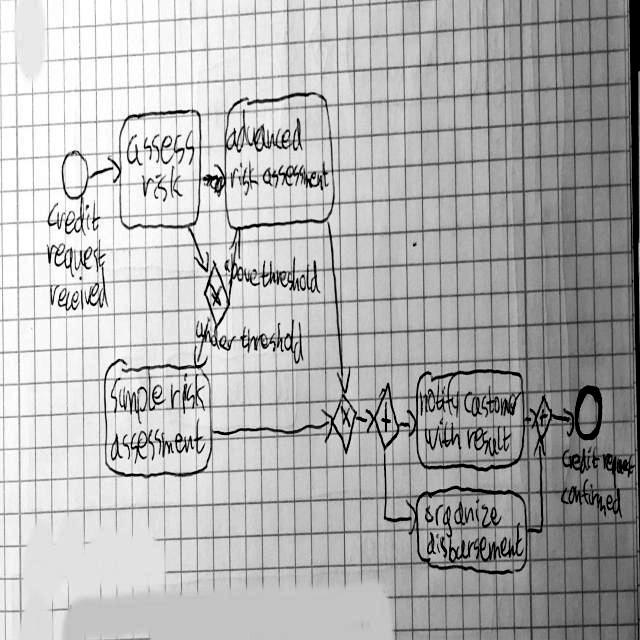 assess
risk
advanced
risk assessment
Credit
request
received
above threshold
under threshold
simple risk
assessment
X
X
+
notify customer
with result
+
Credit request
confirmed
organize
disbursement